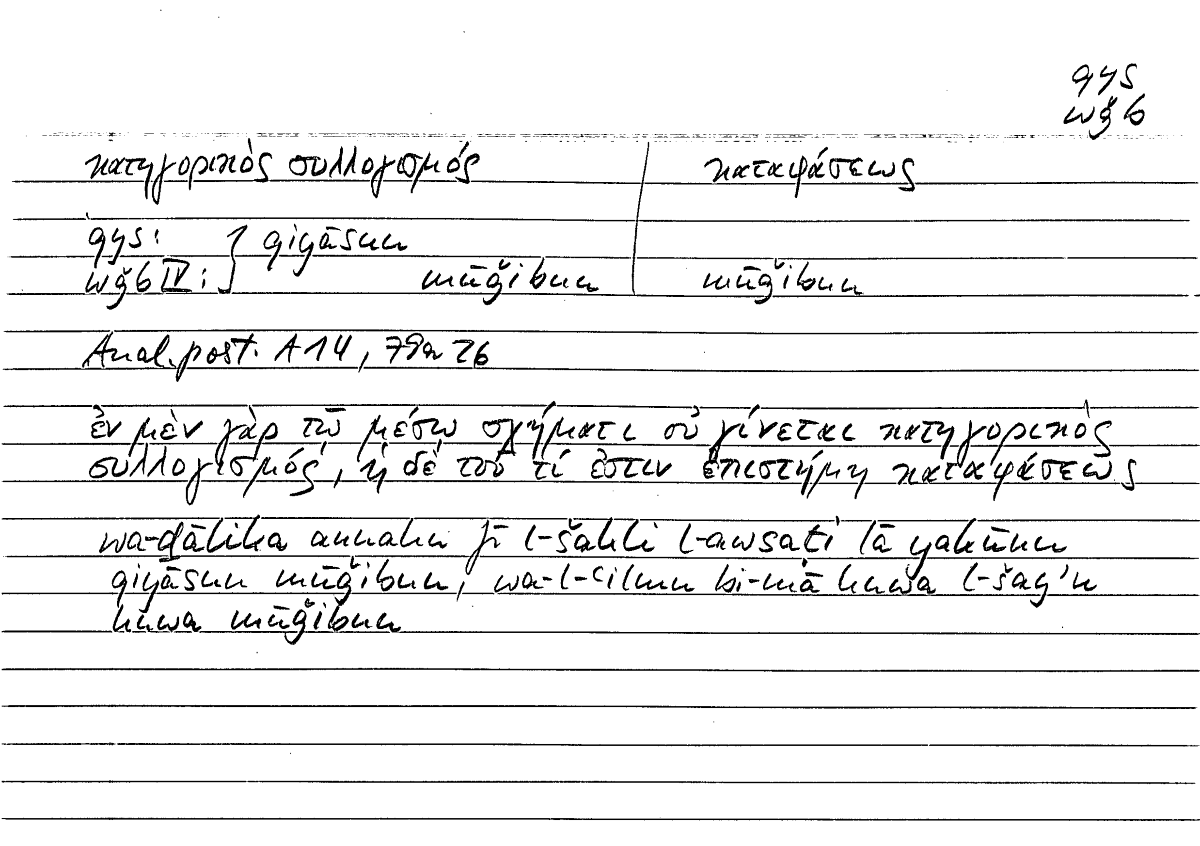 qys
wǧb
κατηγορικὸς συλλογισμός | καταφάσεως
qys: } qiyāsun
wǧb IV: } mūǧibun | mūǧibun
Anal. post. A 14, 79a 26
ἐν μὲν γὰρ τῷ μέσῳ σχήματι οὐ γίνεται κατηγορικὸς
συλλογισμός, ἡ δὲ τοῦ τί ἐστιν ἐπιστήμη καταφάσεως
wa-ḏālika annahu fī l-šakli l-awsaṭi lā yakūnu
qiyāsun mūǧibun, wa-l-ʿilmu bi-mā huwa l-šayʾu
huwa mūǧibun